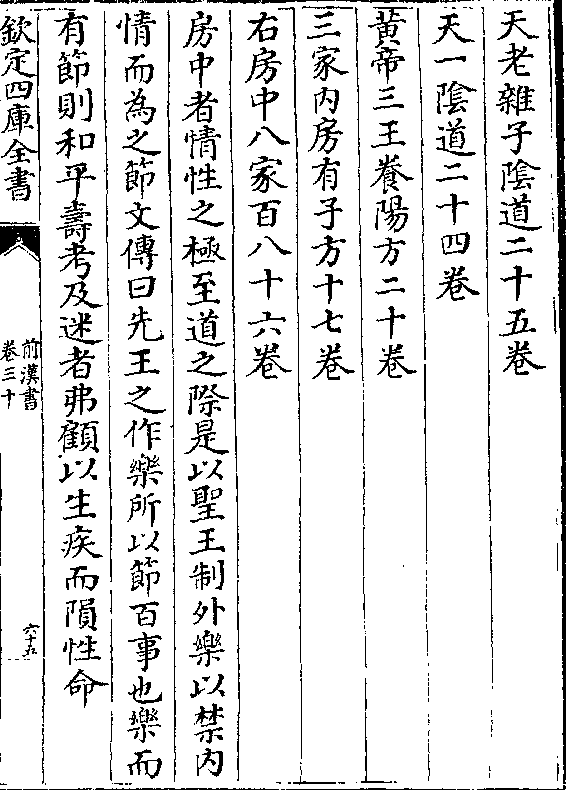 天老雜子陰道二十五卷
天一陰道二十四卷
黃帝三王養陽方二十卷
三家内房有子方十七卷
右房中八家百八十六卷
房中者情性之極至道之際是以聖王制外樂以禁内
情而為之節文傳曰先王之作樂所以節百事也樂而
有節則和平壽考及迷者弗顧以生疾而隕性命
欽定四庫全書
前漢書
卷三十
六十五